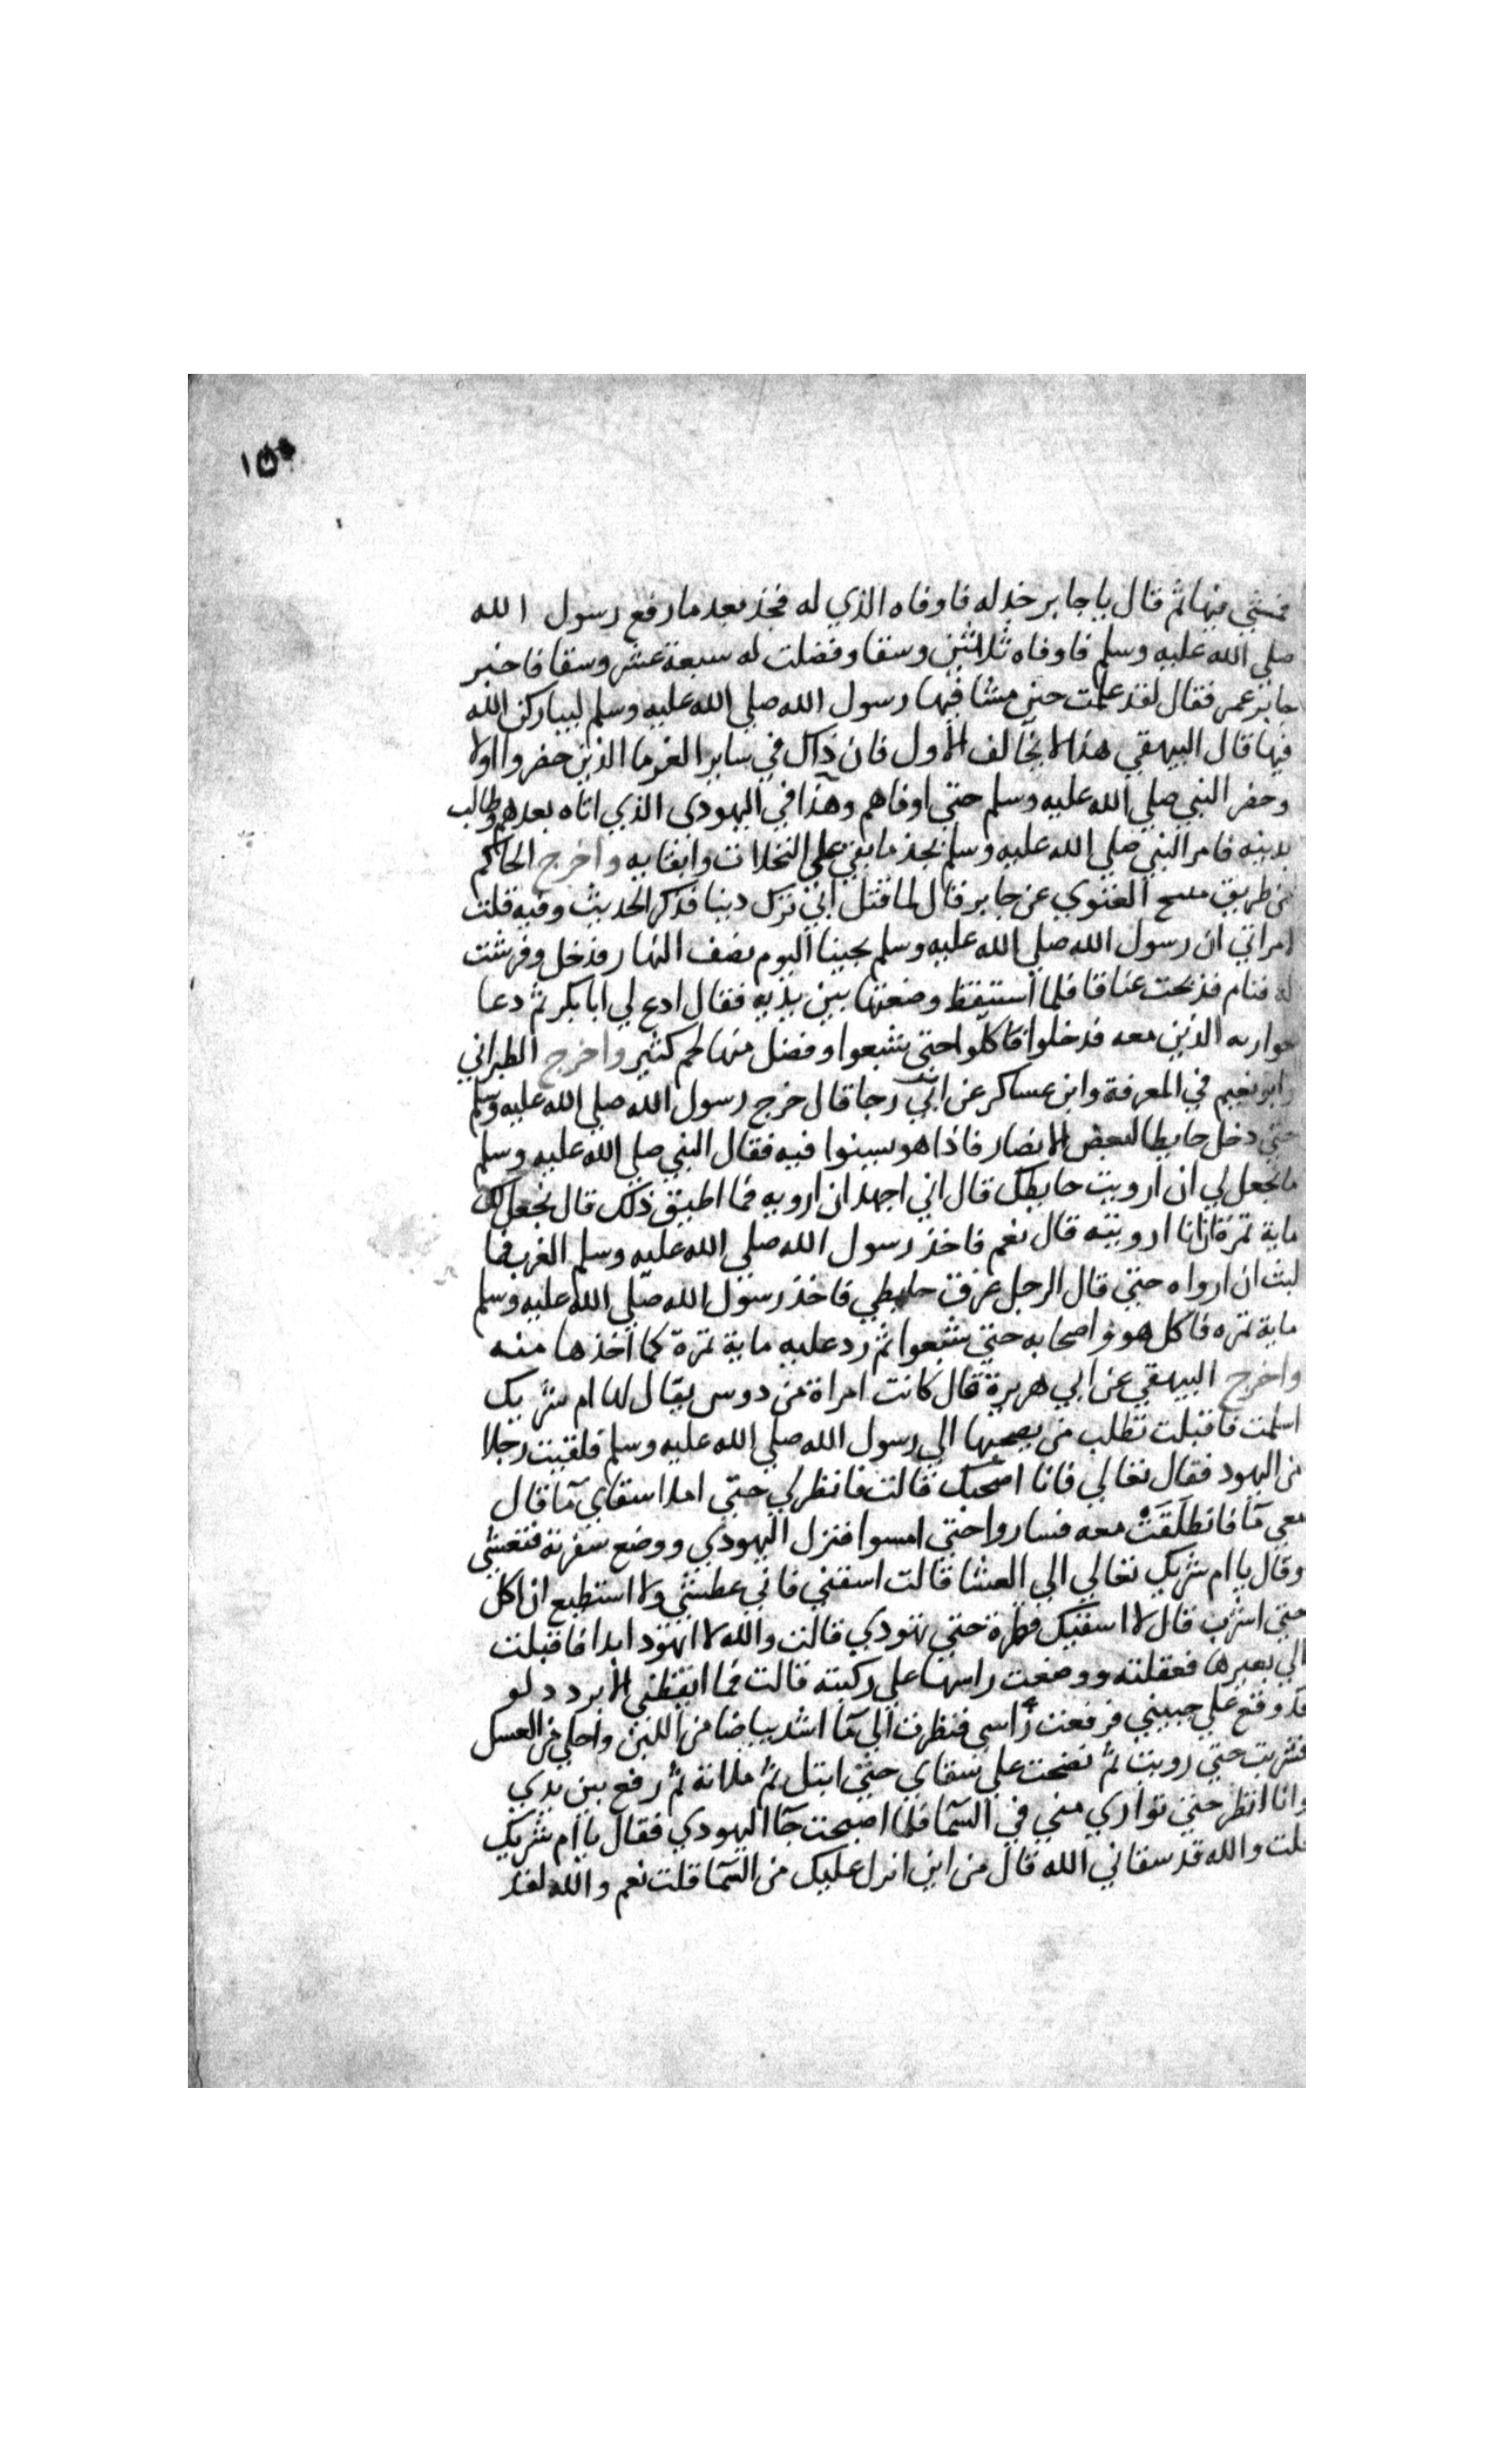 ١٥٠
فمشي فيها ثم قال يا جابر جد له فاوفاه الذي له فجذ بعد ما رفع رسول الله
صلي الله عليه وسلم فاوفاه ثلاثين وسقا وفضلت له سبعة عشر وسقا فاخبر
جابر عمر فقال لقد علمت حين مشا فيها رسول الله صلي الله عليه وسلم ليباركن الله
فيها قال البيهقي هذا لا يخالف الاول فان ذاك في ساير الغرما الذين حضروا اولا
وحضر النبي صلي الله عليه وسلم حتي اوفاهم وهذا في اليهودي الذي اتاه بعدهم وطالب
بدينه فامر النبي صلي الله عليه وسلم بجذ ما بقي علي النخلات وايفايه واخرج الحاكم
من طريق نبيح العنزي عن جابر قال لما قتل ابي ترك دينا فذكر الحديث وفيه قلت
لامراتي ان رسول الله صلي الله عليه وسلم يجينا اليوم نصف النهار فدخل وفرشت
له فنام فذبحت عناقا فلما استيقظ وضعتها بين يديه فقال ادع لي ابا بكر ثم دعا
حواريه الذين معه فدخلوا فاكلوا حتي شبعوا وفضل منها لحم كثير واخرج الطبراني
وابو نعيم في المعرفة وابن عساكر عن ابي رجا قال خرج رسول الله صلي الله عليه وسلم
حتي دخل حايطا لبعض الانصار فاذا هو يسنوا فيه فقال النبي صلي الله عليه وسلم
ما تجعل لي ان ارويت حايطك قال اني اجهد ان ارويه فما اطيق ذلك قال تجعل لي
ماية تمرة ان انا ارويته قال نعم فاخذ رسول الله صلي الله عليه وسلم الغرب فما
لبث ان ارواه حتي قال الرجل غرقت حايطي فاخذ رسول الله صلي الله عليه وسلم
ماية تمره فاكل هو واصحابه حتي شبعوا ثم رد عليه ماية تمرة كما اخذها منه
واخرج البيهقي عن ابي هريرة قال كانت امراة من دوس يقال لها ام شريك
اسلمت فاقبلت تطلب من يصحبها الي رسول الله صلي الله عليه وسلم فلقيت رجلا
من اليهود فقال تعالي فانا اصحبك قالت فانظرلي حتي املا سقاي مآ قال
معي مآ فانطلقَتْ معه فساروا حتي امسوا فنزل اليهودي ووضع سفرته فتعشي
وقال يا ام شريك تعالي الي العشا قالت اسقني فاني عطشي ولا استطيع ان اكل
حتي اشرب قال لا اسقيك قطرة حتي تهودي قالت والله لا اتهود ابدا فاقبلت
الي بعيرها فعقلته ووضعت راسها علي ركبته قالت فما ايقظني الا برد دلو
قد وقع علي جبيني فرفعت رأسي فنظرت الي مآ اشد بياضا من اللبن واحلي من العسل
فشربت حتي رويت ثم نضحت علي سقاي حتي ابتل ثم ملاته ثم رفع بين يدي
وانا انظر حتي تواري مني في السمآ فلما اصبحت جآ اليهودي فقال يا ام شريك
قلت والله قد سقاني الله قال من اين انزل عليك من السمآ قلت نعم والله لقد